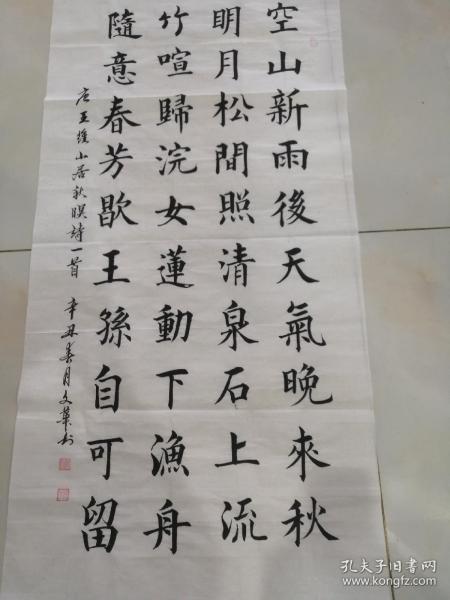 空山新雨後天氣晚來秋
明月松間照清泉石上流
竹喧歸浣女蓮動下漁舟
隨意春芳歇王孫自可留
唐王維山居秋暝詩一首
辛丑春月文葉书
孔夫子旧书网
www.kongfz.com